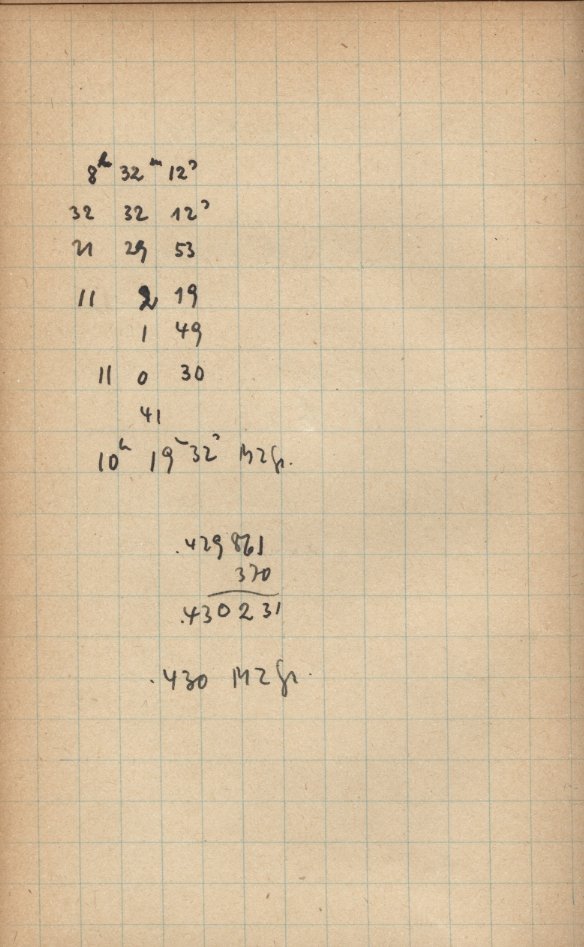 8ʰ 32ᵐ 12ˢ
32 32 12ˢ
21 29 53
11 2 19
1 49
11 0 30
41
10ʰ 19ᵐ 32ˢ MZGr.
.429861
370
.430231
.430 MZGr.